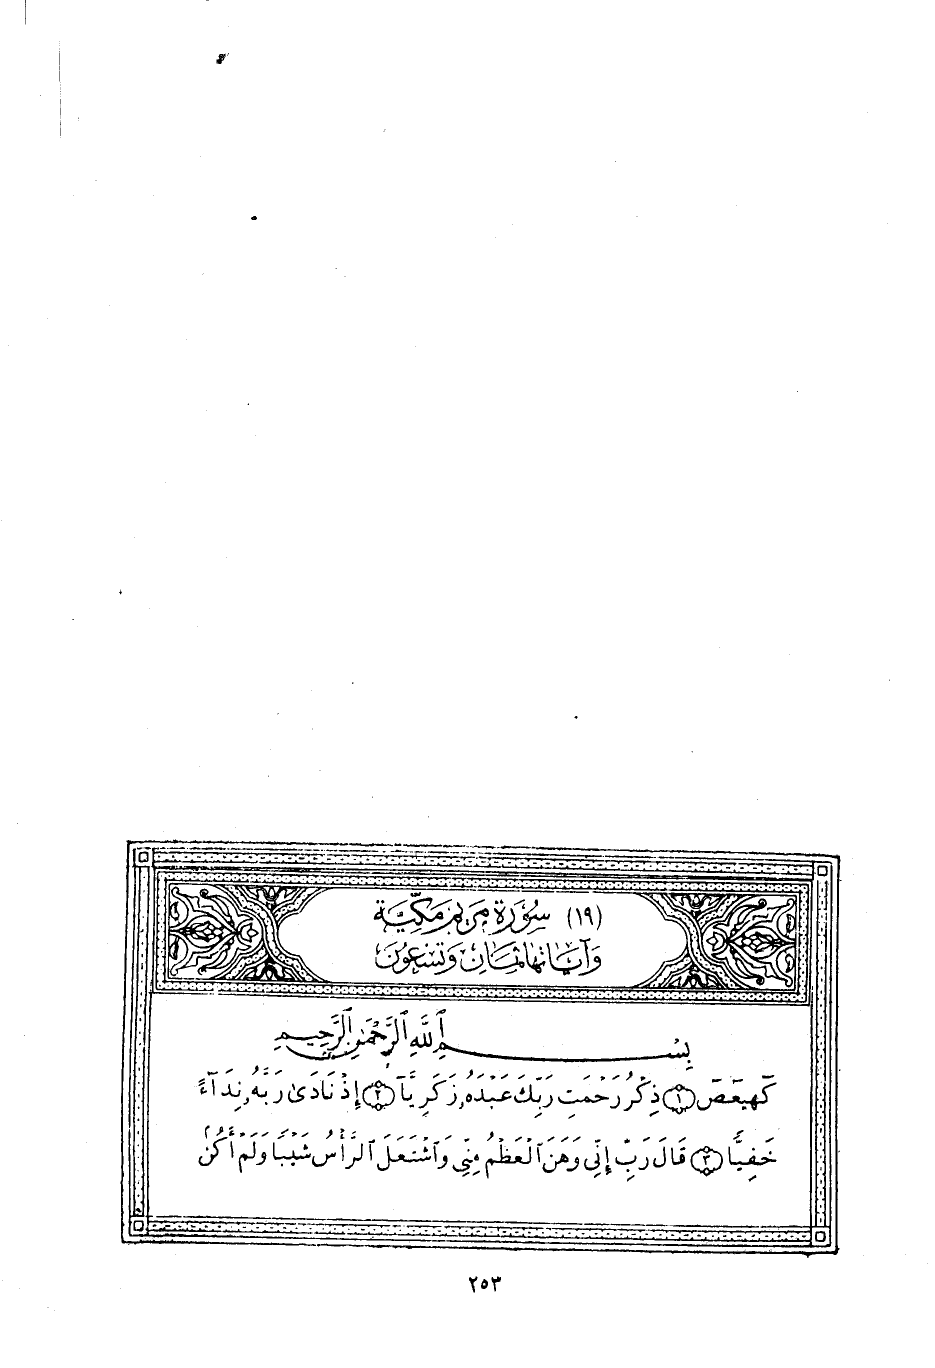 (١٩) سُورَة مَريَم مَكيَّة
وَآيَاتهَا ثمَان وَتِسْعُونَ
بِسْمِ ٱللَّهِ ٱلرَّحْمَٰنِ ٱلرَّحِيمِ
كٓهيعٓصٓ ١ ذِكْرُ رَحْمَتِ رَبِّكَ عَبْدَهُۥ زَكَرِيَّآ ٢ إِذْ نَادَىٰ رَبَّهُۥ نِدَآءً
خَفِيًّا ٣ قَالَ رَبِّ إِنِّى وَهَنَ ٱلْعَظْمُ مِنِّى وَٱشْتَعَلَ ٱلرَّأْسُ شَيْبًا وَلَمْ أَكُنۢ
٢٥٣